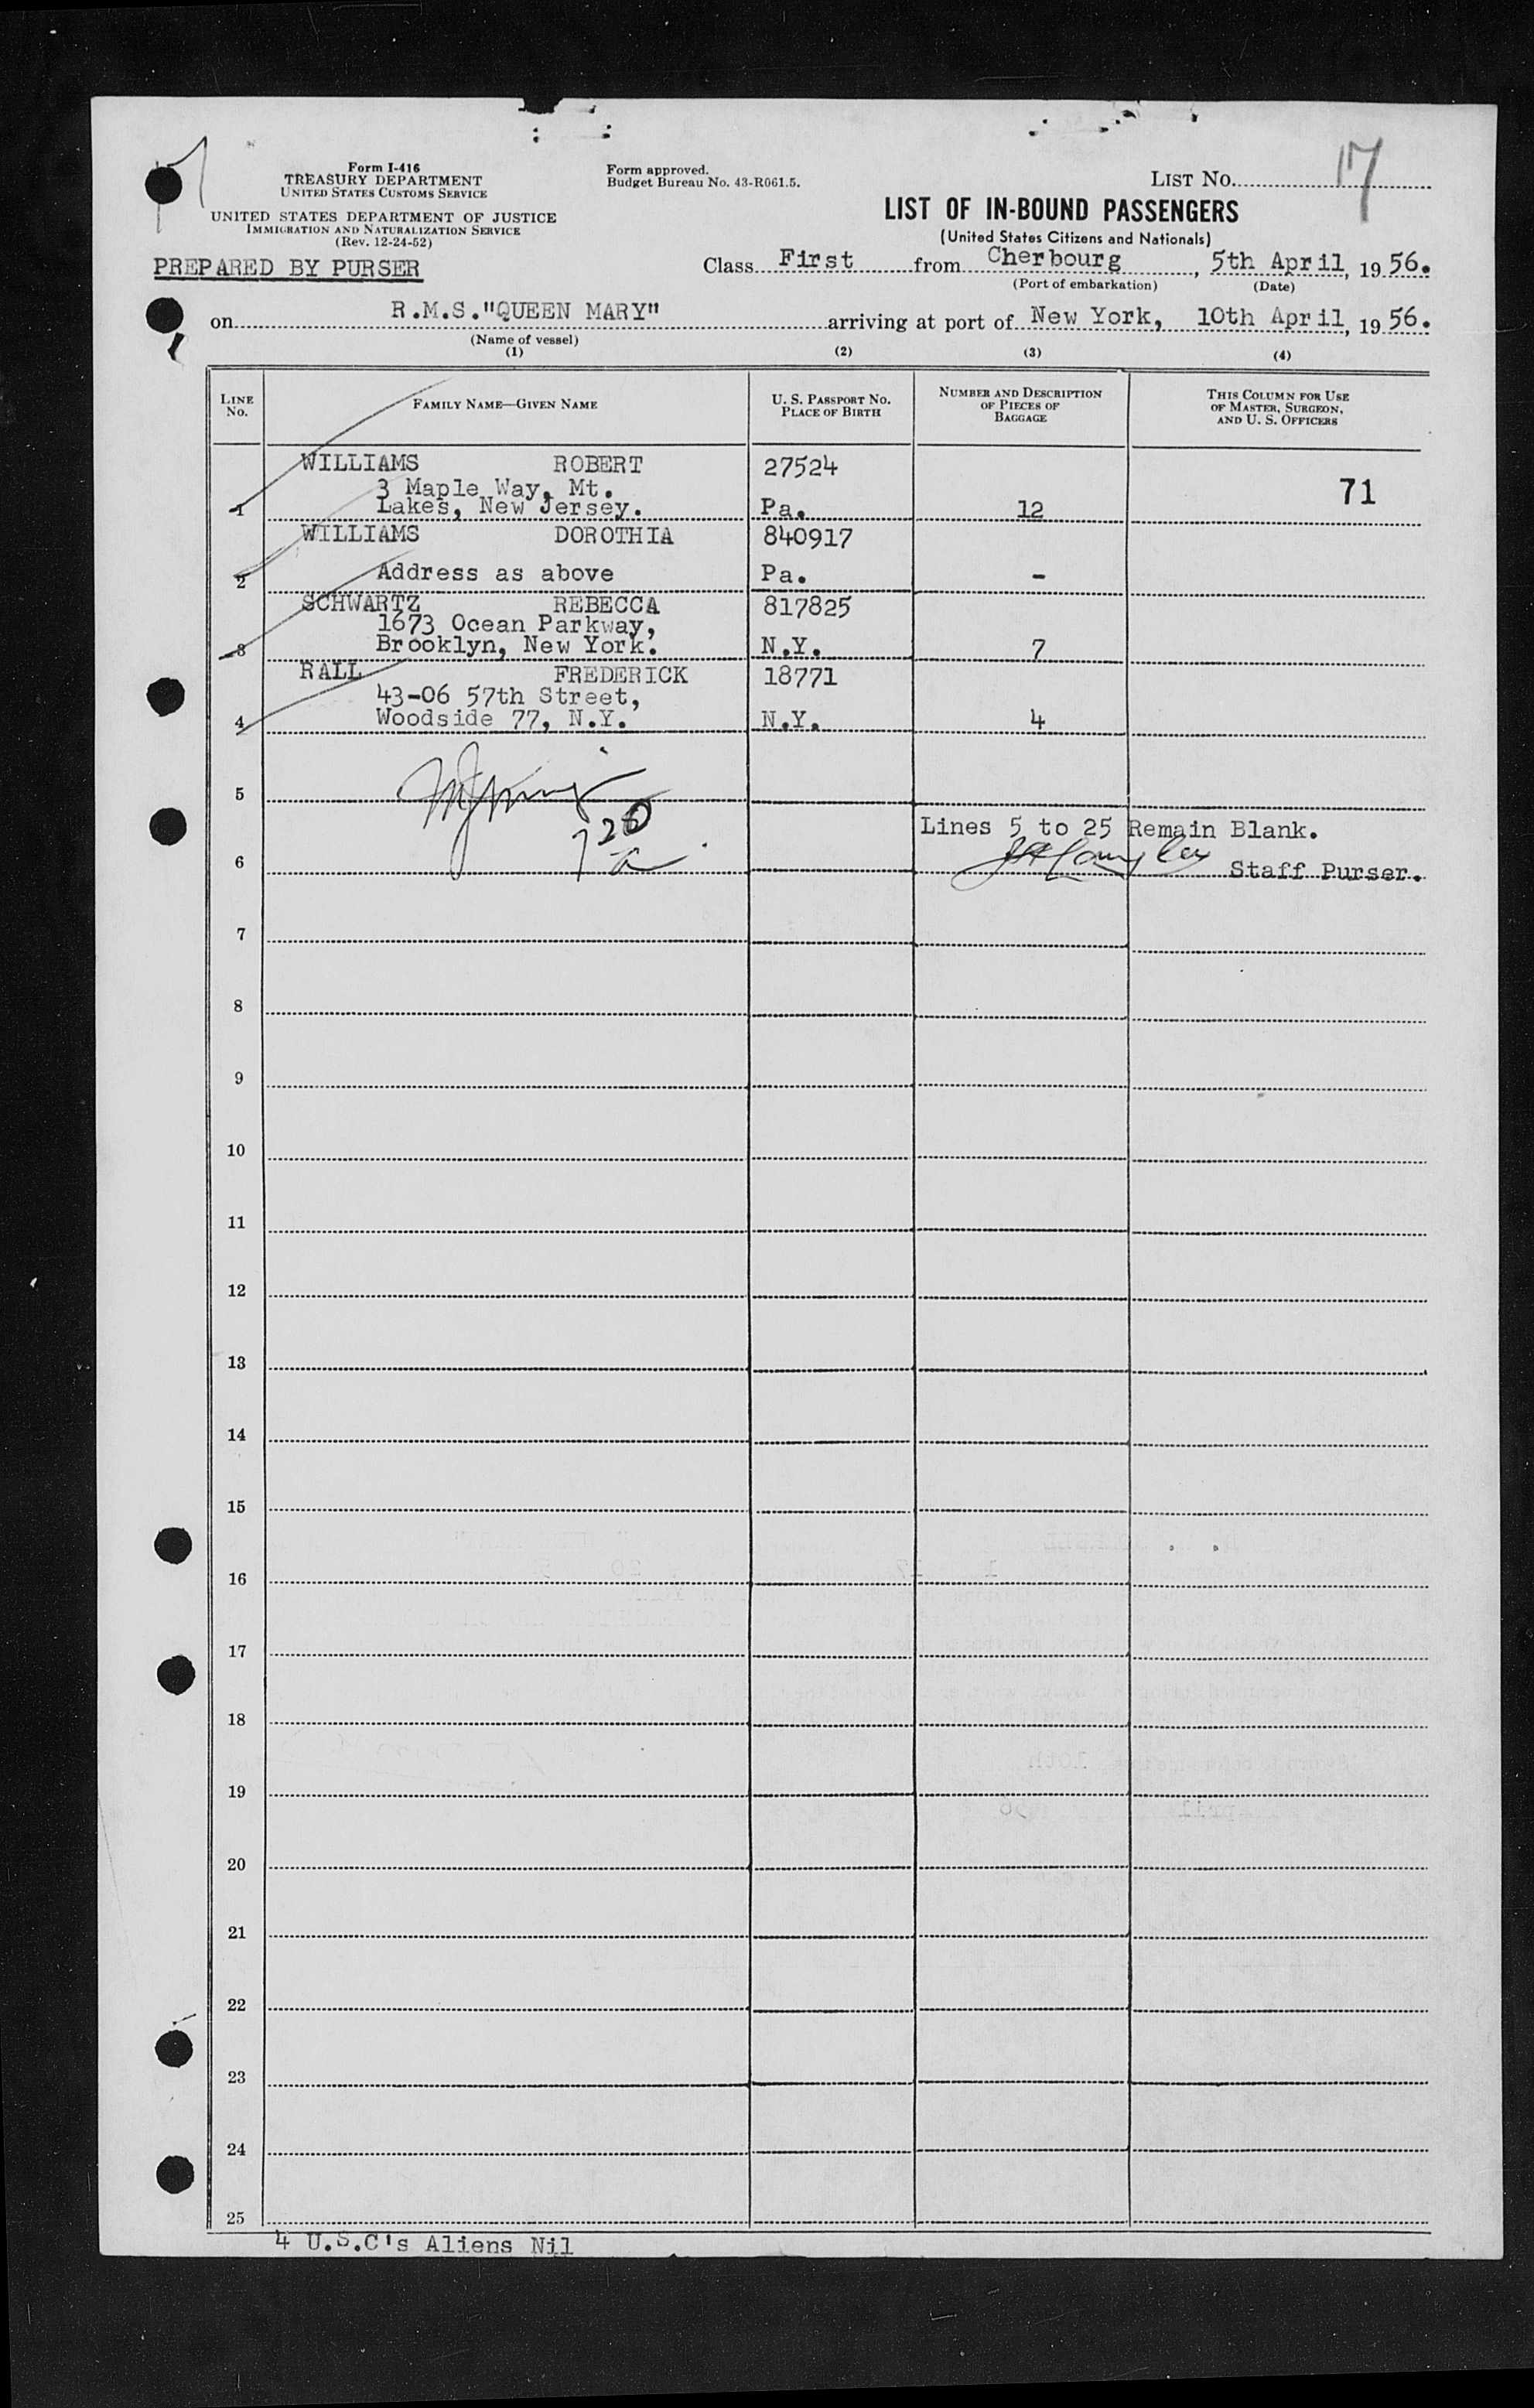 Form I-416
TREASURY DEPARTMENT
UNITED STATES CUSTOMS SERVICE
UNITED STATES DEPARTMENT OF JUSTICE
IMMIGRATION AND NATURALIZATION SERVICE
(Rev. 12-24-52)
PREPARED BY PURSER
Form approved.
Budget Bureau No. 43-R061.5.
LIST NO. 17
LIST OF IN-BOUND PASSENGERS
(United States Citizens and Nationals)
Class First from Cherbourg, 5th April, 1956.
(Port of embarkation) (Date)
on R.M.S."QUEEN MARY" arriving at port of New York, 10th April, 1956.
(Name of vessel)
(1) (2) (3) (4)
LINE NO. FAMILY NAME—GIVEN NAME U. S. PASSPORT NO. PLACE OF BIRTH NUMBER AND DESCRIPTION OF PIECES OF BAGGAGE THIS COLUMN FOR USE OF MASTER, SURGEON, AND U. S. OFFICERS
WILLIAMS ROBERT 27524
3 Maple Way, Mt. 71
1 Lakes, New Jersey. Pa. 12
WILLIAMS DOROTHIA 840917
2 Address as above Pa. -
SCHWARTZ REBECCA 817825
1673 Ocean Parkway,
3 Brooklyn, New York. N.Y. 7
RALL FREDERICK 18771
43-06 57th Street,
4 Woodside 77, N.Y. N.Y. 4
5
720
Lines 5 to 25 Remain Blank.
6 Staff Purser.
7
8
9
10
11
12
13
14
15
16
17
18
19
20
21
22
23
24
25
4 U.S.C's Aliens Nil